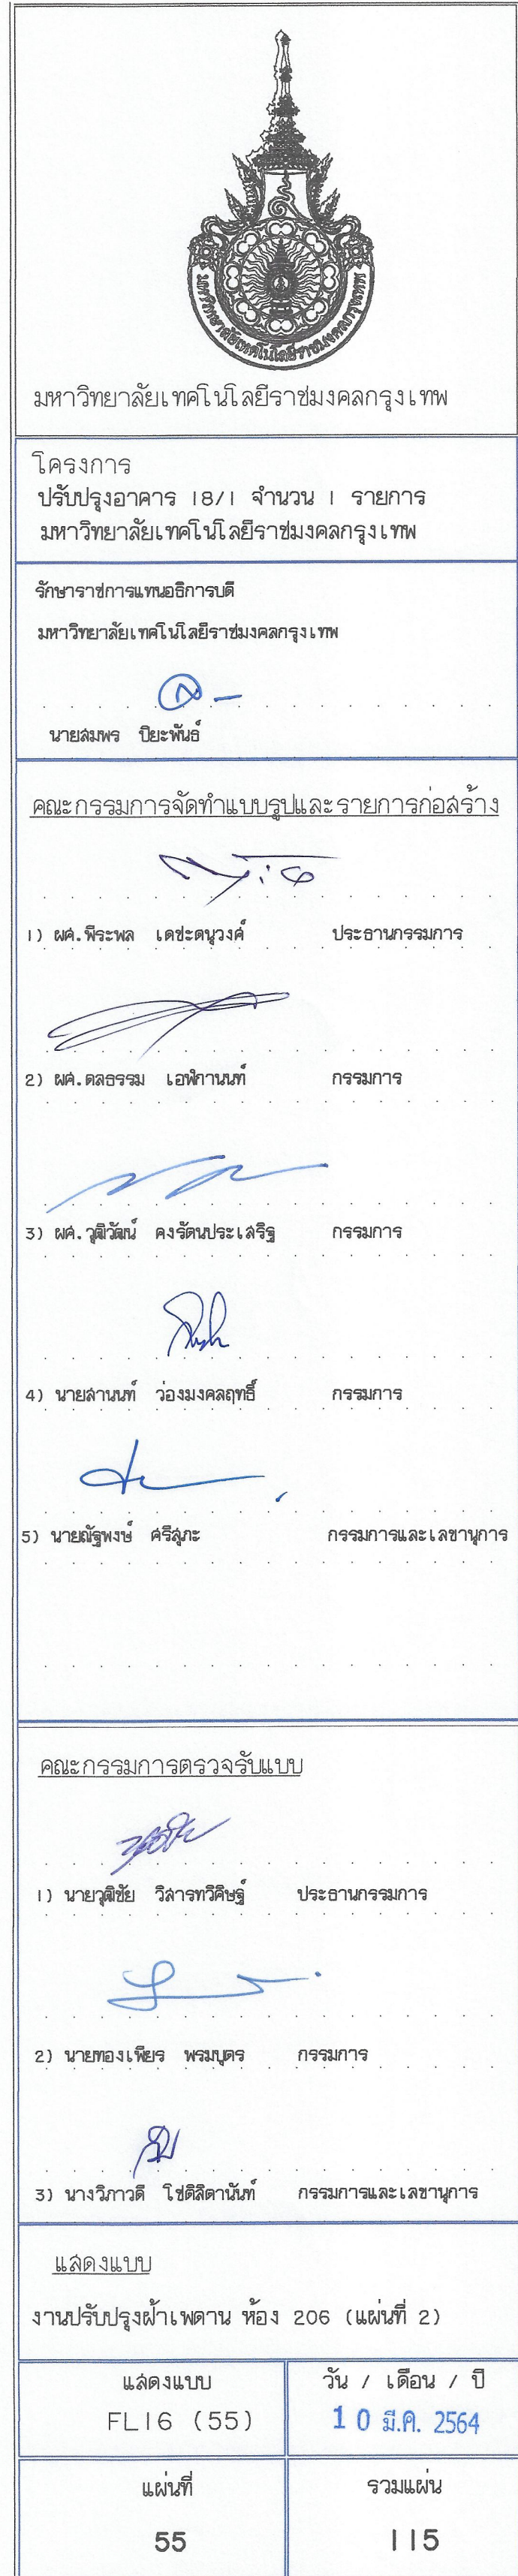 มหาวิทยาลัยเทคโนโลยีราชมงคลกรุงเทพ
มหาวิทยาลัยเทคโนโลยีราชมงคลกรุงเทพ
โครงการ
ปรับปรุงอาคาร 18/1 จำนวน 1 รายการ
มหาวิทยาลัยเทคโนโลยีราชมงคลกรุงเทพ
รักษาราชการแทนอธิการบดี
มหาวิทยาลัยเทคโนโลยีราชมงคลกรุงเทพ
นายสมพร ปิยะพันธ์
คณะกรรมการจัดทำแบบรูปและรายการก่อสร้าง
1) ผศ.พีระพล เดชะดนูวงศ์ ประธานกรรมการ
2) ผศ.ดลธรรม เอฬกานนท์ กรรมการ
3) ผศ.วุฒิวัฒน์ คงรัตนประเสริฐ กรรมการ
4) นายสานนท์ ว่องมงคลฤทธิ์ กรรมการ
5) นายณัฐพงษ์ ศรีสุภะ กรรมการและเลขานุการ
คณะกรรมการตรวจรับแบบ
1) นายวุฒิชัย วิสารทวิศิษฐ์ ประธานกรรมการ
2) นายทองเพียร พรมบุตร กรรมการ
3) นางวิภาวดี โชติลิตานันท์ กรรมการและเลขานุการ
แสดงแบบ
งานปรับปรุงฝ้าเพดาน ห้อง 206 (แผ่นที่ 2)
แสดงแบบ วัน / เดือน / ปี
FL16 (55) 10 มี.ค. 2564
แผ่นที่ รวมแผ่น
55 115